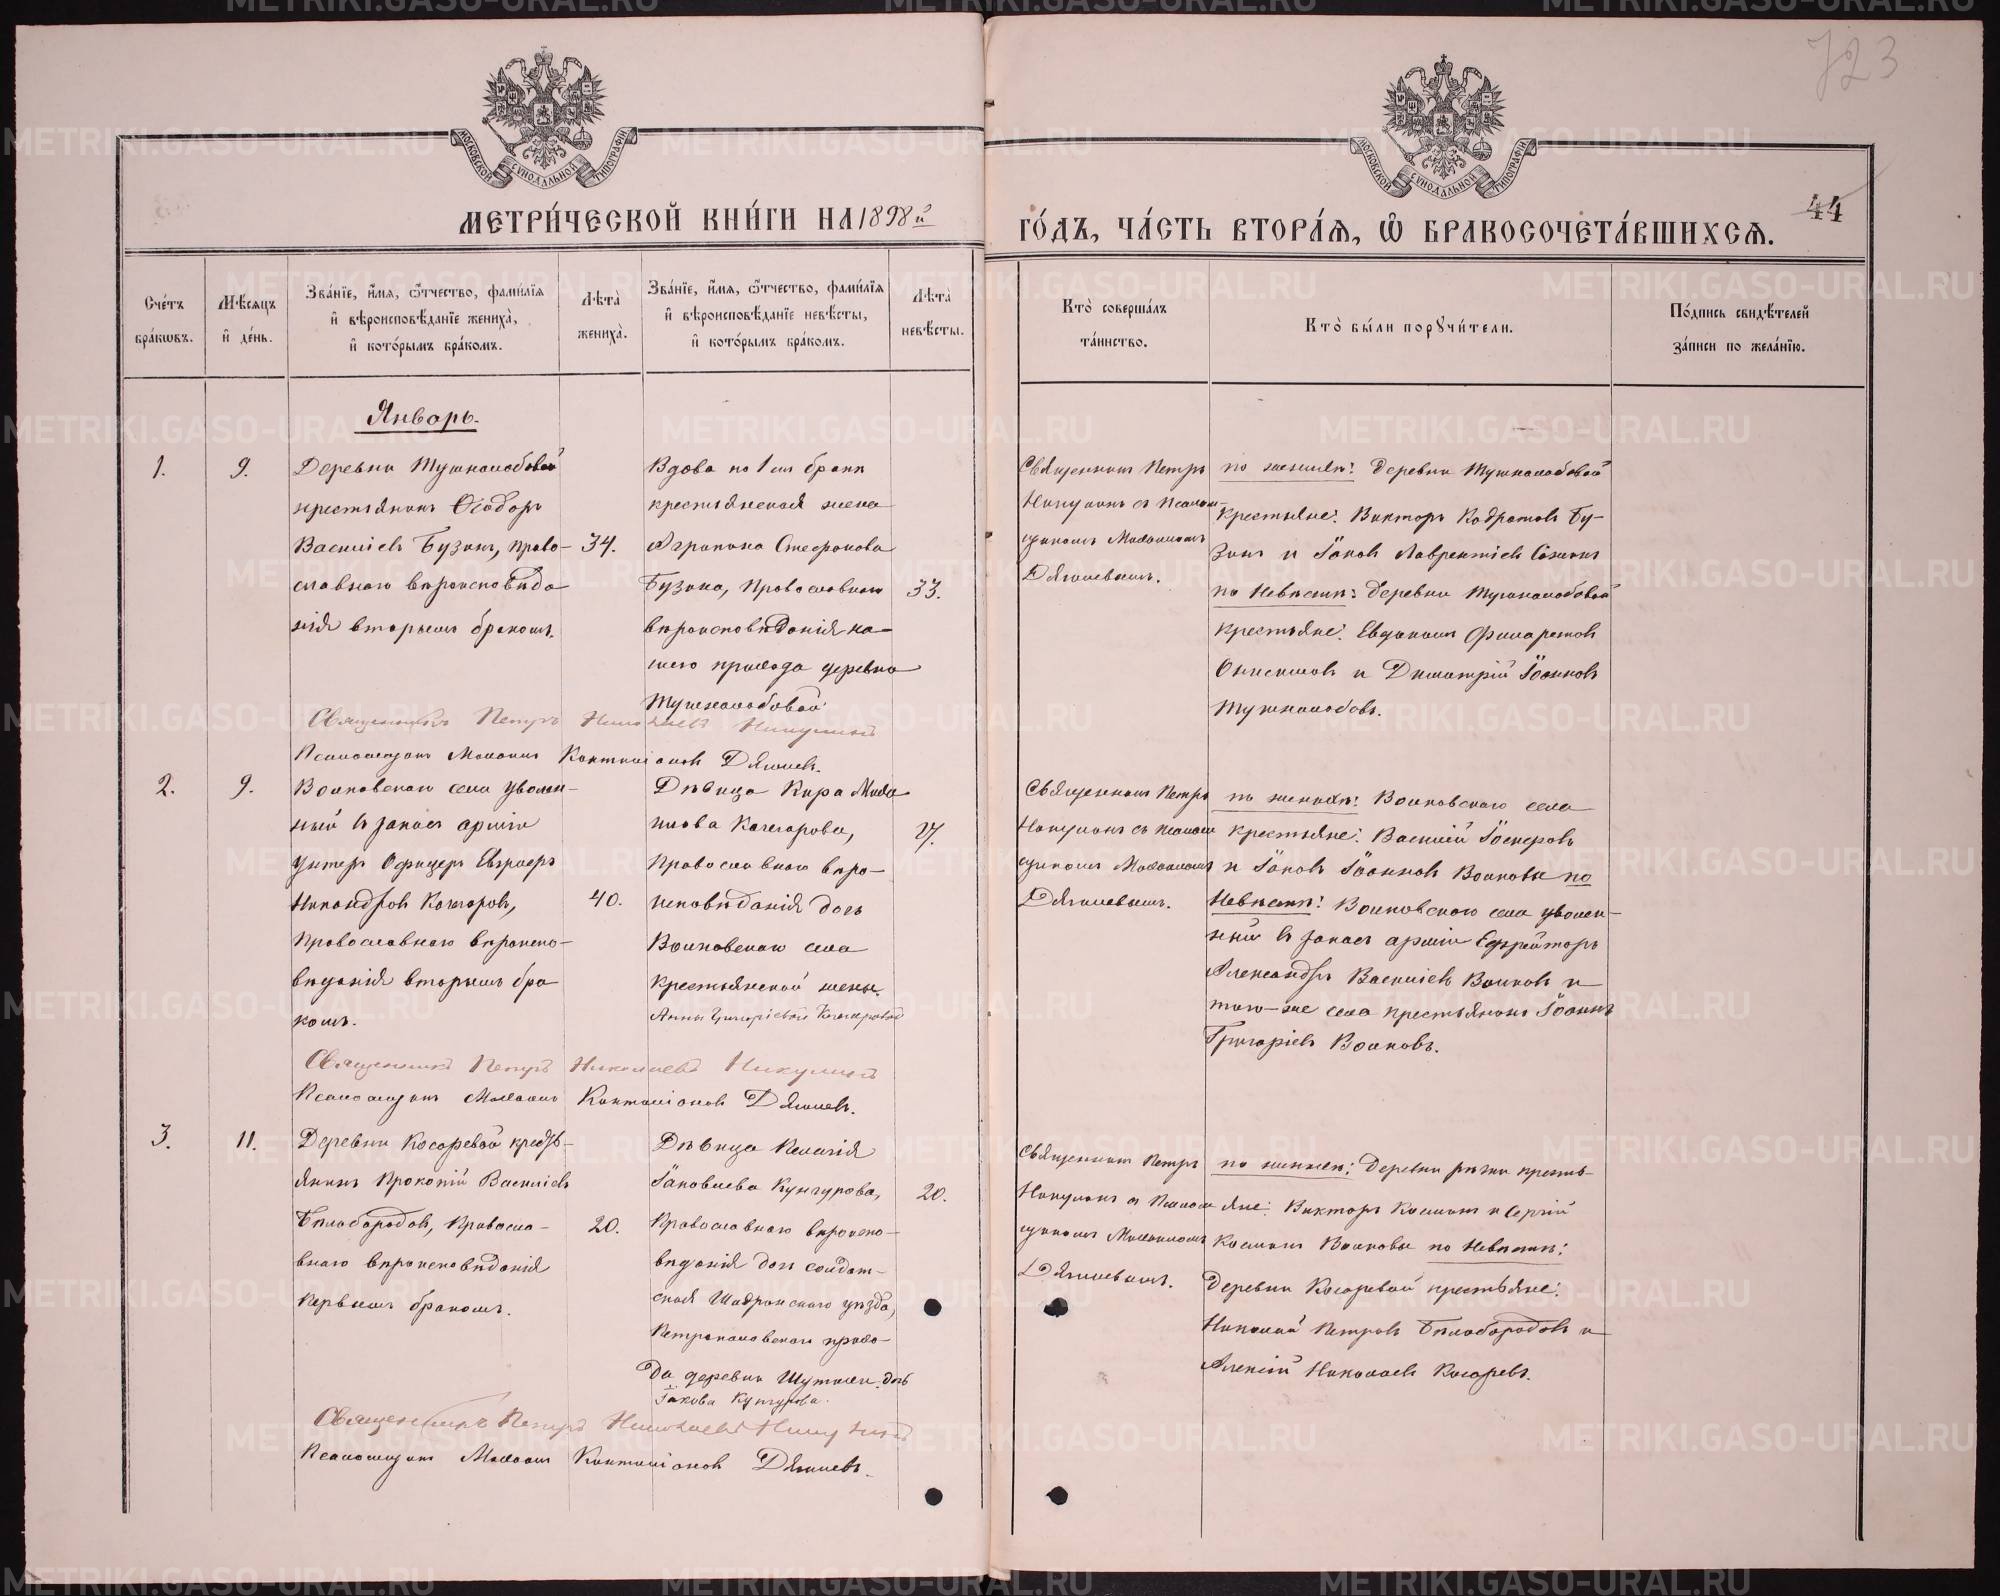 723
МОСКОВСКОЙ СУНОДАЛЬНОЙ ТИПОГРАФІИ
МОСКОВСКОЙ СУНОДАЛЬНОЙ ТИПОГРАФІИ
МЕТРИ́ЧЕСКОЙ КНИ́ГИ НА 1898й
ГО́ДЪ, ЧА́СТЬ ВТОРА́Я, Ѽ БРАКОСОЧЕТА́ВШИХСЯ.
44
Сче́тъ
бра́кѡвъ.
Мѣ́сѧцъ
и҆ де́нь.
Зва́нїе, и҆́мѧ, ѻ҆́тчество, фами́лїѧ
и҆ вѣроисповѣ́данїе жениха̀,
и҆ кото́рымъ бра́комъ.
Лѣта̀
жениха̀.
Зва́нїе, и҆́мѧ, ѻ҆́тчество, фами́лїѧ
и҆ вѣроисповѣ́данїе невѣ́сты,
и҆ кото́рымъ бра́комъ.
Лѣта̀
невѣ́сты.
Кто̀ соверша́лъ
та́инство.
Кто̀ бы́ли порꙋчи́тели.
По́дпись свидѣ́телей
за́писи по жела́нїю.
Январь.
1.
9.
Деревни Тушкалобовой
крестьянинъ Ѳеодоръ
Василіевъ Бузинъ, право-
славнаго вѣроисповѣда
нія вторымъ бракомъ.
34.
Вдова по 1мъ бракѣ
крестьянская жена
Агрипина Стефанова
Бузина, Православнаго
вѣроисповѣданія на-
шего прихода деревни
Тушкалобовой
33.
Священникъ Петръ
Никулинъ съ Псалом-
щикомъ Михаиломъ
Дягилевымъ.
по женихѣ: Деревни Тушкалобовой
крестьяне: Викторъ Кодратовъ Бу-
зинъ и Іаковъ Лаврентіевъ
по Невѣстѣ: Деревни Тушкалобовой
крестьяне: Евдокимъ Филаретовъ
Онисимовъ и Димитрій Іоанновъ
Тушкалобовъ.
Священникъ Петръ Николаевъ Никулинъ
Псаломщикъ Михаилъ Каптиліоновъ Дягилевъ.
2.
9.
Волковскаго села уволен-
ный въ запасъ арміи
Унтеръ Офицеръ
Никандровъ Кочегаровъ,
Православнаго вѣроиспо-
вѣданія вторымъ бра
комъ.
40.
Дѣвица Кира Миха
илова Кочегарова,
Православнаго вѣро-
исповѣданія дочь
Волковскаго села
крестьянской жены.
Анны Григоріевой Кочегаровой
27.
Священникъ Петръ
Никулинъ съ Псалом
щикомъ Михаиломъ
Дягилевымъ.
по женихѣ: Волковскаго села
крестьяне: Василій
и Іаковъ Іоанновъ Волковы по
Невѣстѣ: Волковскаго села уволен-
ный въ запасъ арміи Ефрейторъ
Александръ Василіевъ Волковъ и
того-же села крестьянинъ Іоаннъ
Григоріевъ Волковъ.
Священникъ Петръ Николаевъ Никулинъ
Псаломщикъ Михаилъ Каптиліоновъ Дягилевъ.
3.
11.
Деревни Косаревой кресть-
янинъ Прокопій Василіевъ
Бѣлобородовъ, Правосла-
внаго вѣроисповѣданія
Первымъ бракомъ.
20.
Дѣвица Пелагія
Іаковлева Кунгурова,
Православнаго вѣроиспо-
вѣданія дочь солдат-
ская Шадринскаго уѣзда,
Петропавловскаго прихо-
да деревни дочь
Іакова Кунгурова.
20.
Священникъ Петръ
Никулинъ съ Псалом
щикомъ Михаиломъ
Дягилевымъ.
по женихѣ: Деревни кресть-
яне: Викторъ Косминъ и Сергій
Косминъ Волковы по Невѣстѣ:
Деревни Косаревой крестьяне:
Николай Петровъ Бѣлобородовъ и
Алексій Николаевъ Косаревъ.
Священникъ Петръ Николаевъ Никулинъ
Псаломщикъ Михаилъ Каптиліоновъ Дягилевъ.
METRIKI.GASO-URAL.RU